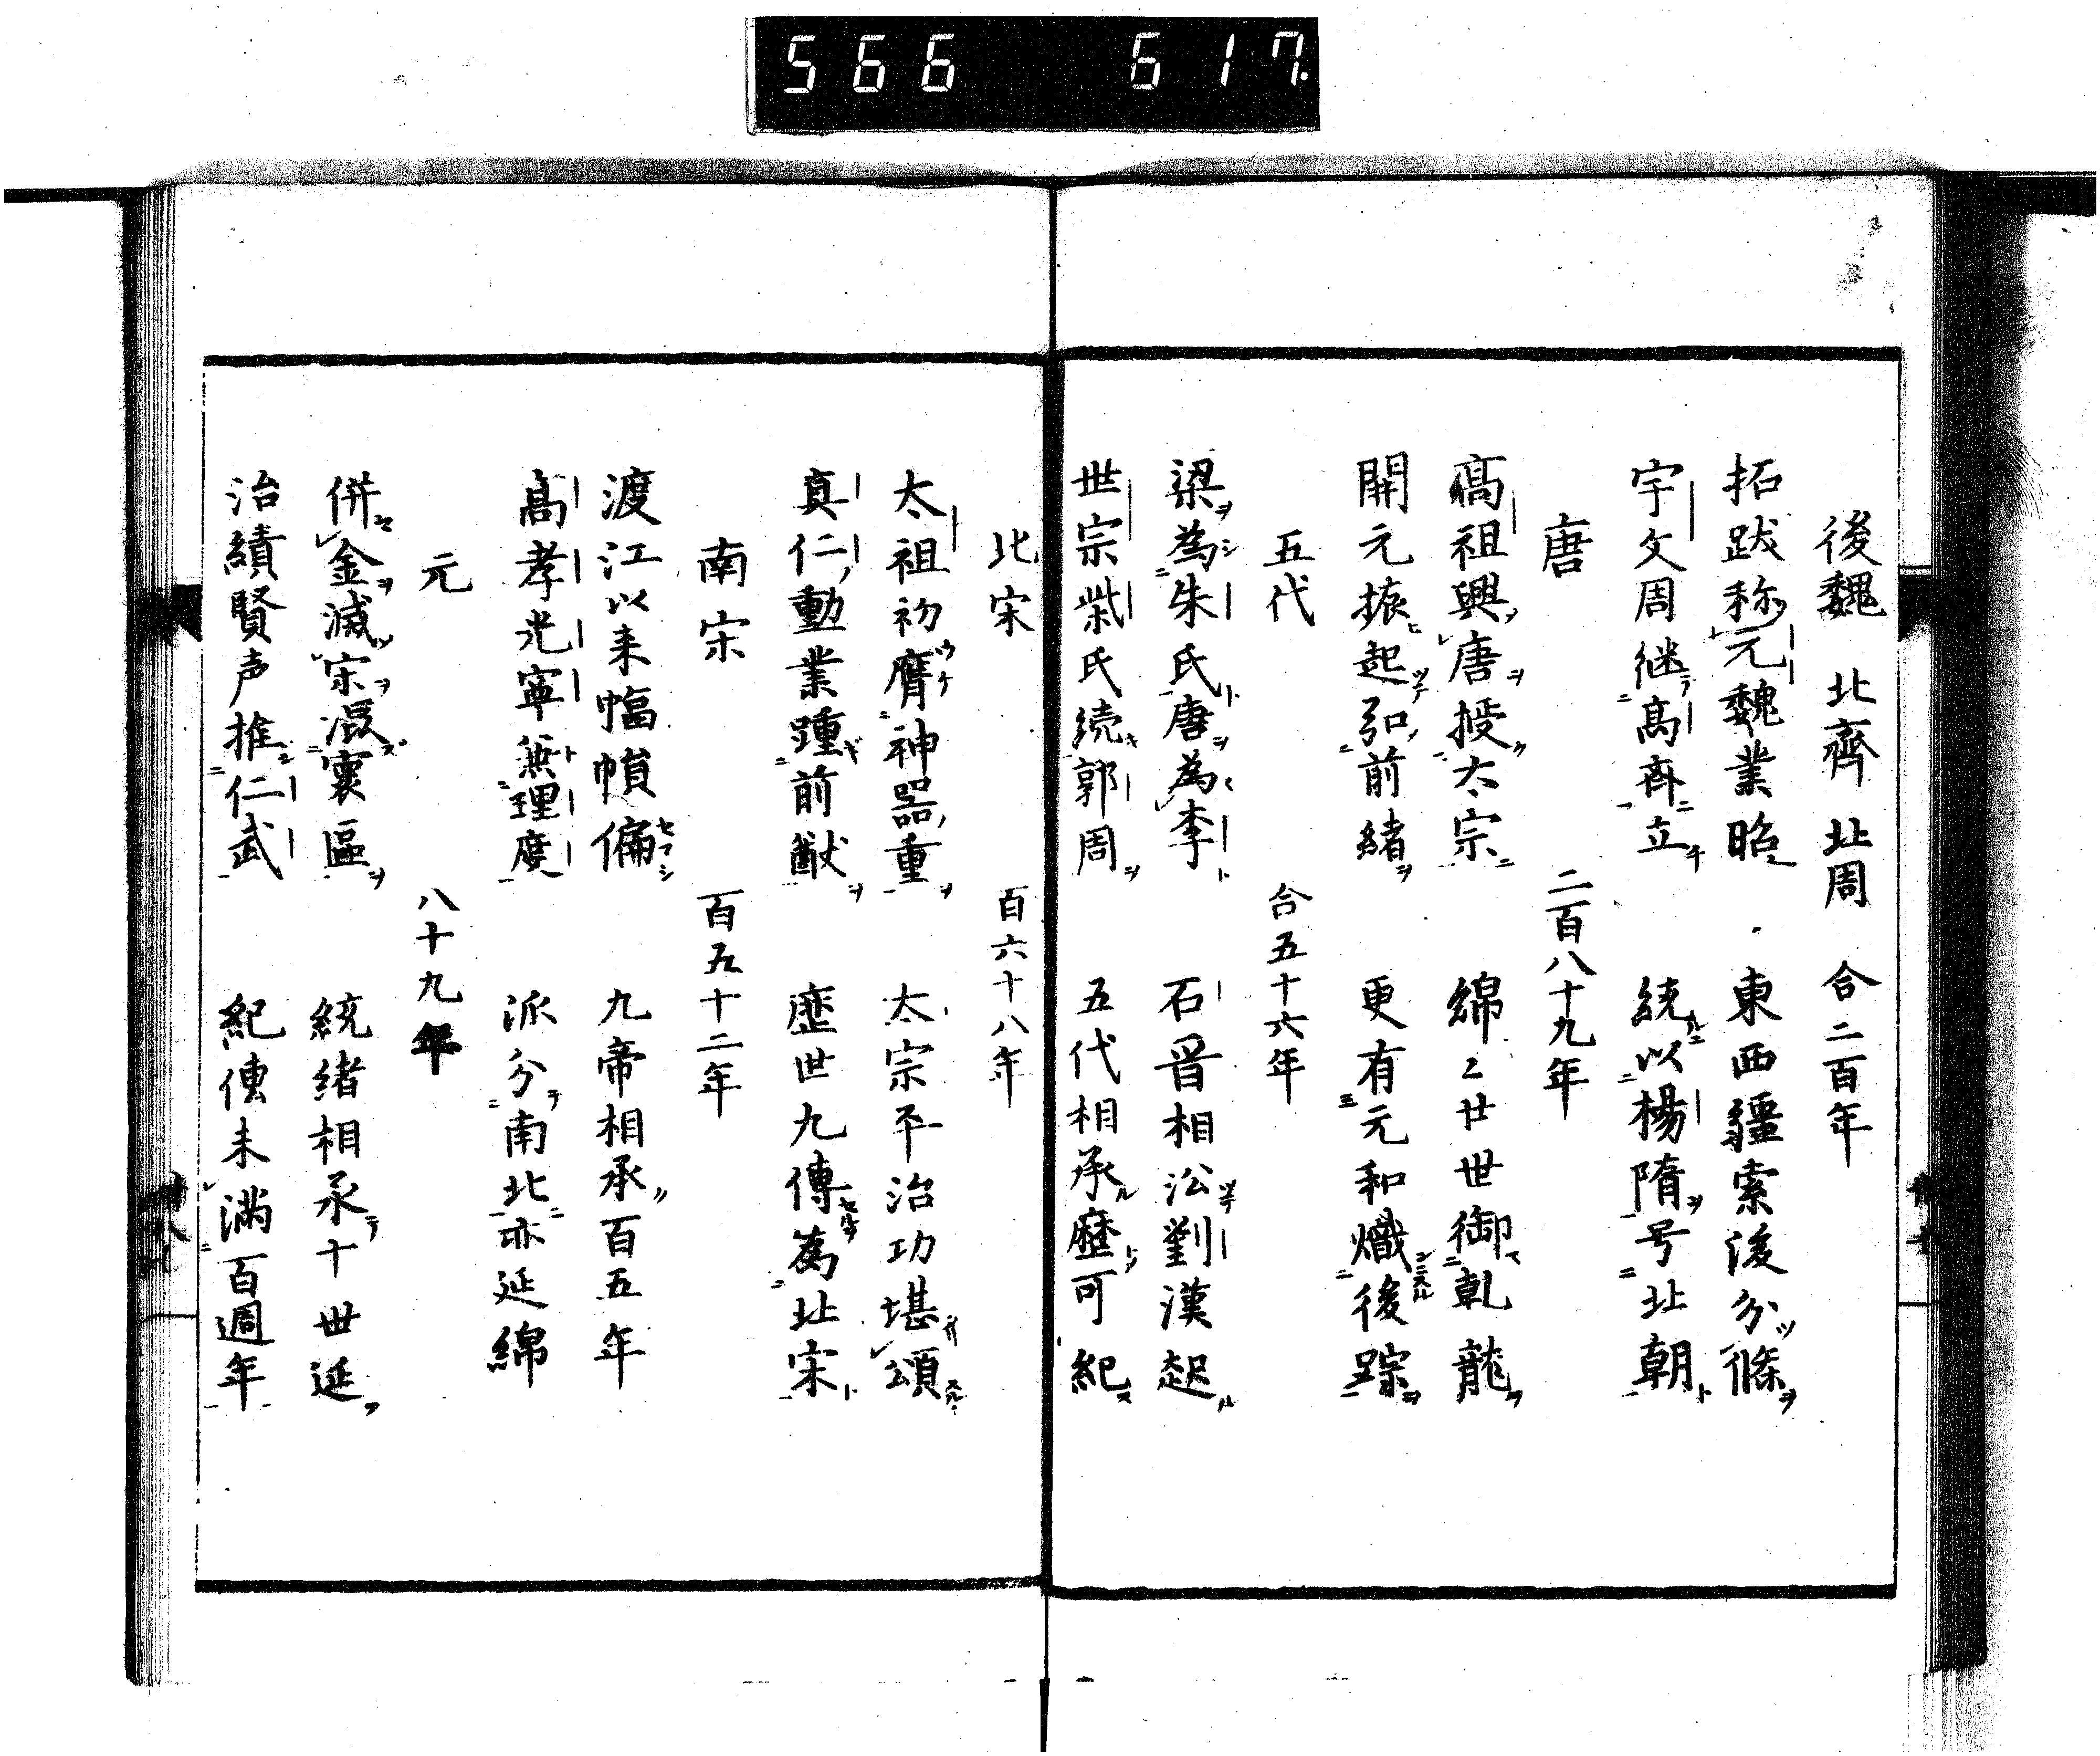 566 617.
後魏 北齊 北周 合二百年
拓跋称元魏業昭 東西疆索後分條
宇文周継高斉立 統以楊隋号北朝
唐 二百八十九年
高祖興唐授太宗 綿〻廿世御乹龍
開元振起弘前緒 更有元和熾後踪
五代 合五十六年
梁為朱氏唐為李 石晋相㳂劉漢起
世宗柴氏続郭周 五代相承歴可紀
北宋 百六十八年
太祖初膺神器重 太宗平治功堪頌
真仁動業踵前猷 歴世九傳為北宋
南宋 百五十二年
渡江以来幅幀偏 九帝相承百五年
高孝光寧無理度 派分南北亦延綿
元 八十九年
併金滅宋混寰區 統緒相承十世延
治績賢声推仁武 紀傳未満百週年